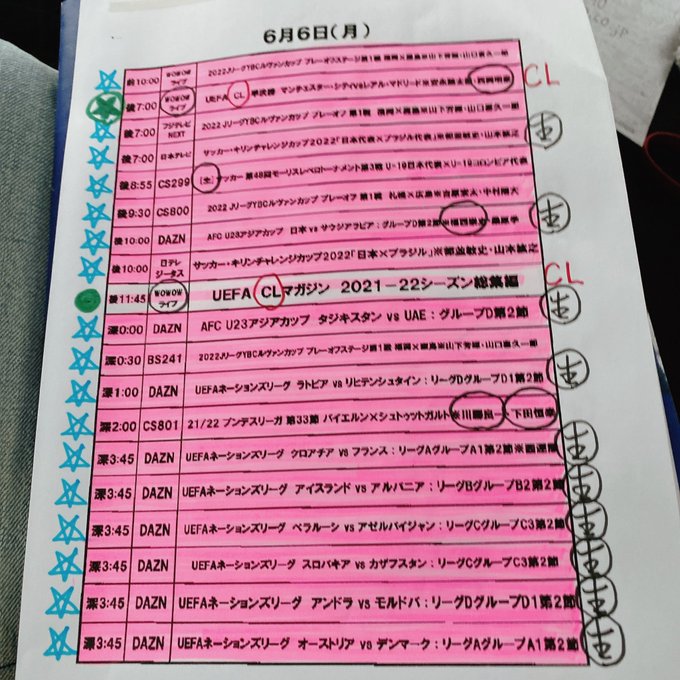 6月6日(月)
前10:00 WOWOWライブ 2022JリーグYBCルヴァンカップ プレーオフステージ第1戦 福岡×鹿島※山下芳輝・山口喜久一郎
後7:00 WOWOWライブ UEFA CL準決勝 マンチェスター・シティvsレアル・マドリード CL
後7:00 フジテレビNEXT 2022 JリーグYBCルヴァンカップ プレーオフ 第1戦 福岡×鹿島※山下芳輝・山口喜久一郎
後7:00 日本テレビ サッカー・キリンチャレンジカップ2022「日本代表×ブラジル代表」※都並敏史・山本 生
後8:55 CS299 [生]サッカー 第48回モーリスレベロトーナメント第3戦 U-19日本代表×U-19コロンビア代表
後9:30 CS800 2022 JリーグYBCルヴァンカップ プレーオフ 第1戦 札幌×広島※吉原宏太・中村
後10:00 DAZN AFC U23アジアカップ 日本 vs サウジアラビア:グループD第2節 生
後10:00 日テレジータス サッカー・キリンチャレンジカップ2022「日本×ブラジル」※都並敏史・山本
後11:45 WOWOWライブ UEFA CLマガジン 2021-22シーズン総集編 CL
深0:00 DAZN AFC U23アジアカップ タジキスタン vs UAE:グループD第2節 生
深0:30 BS241 2022JリーグYBCルヴァンカップ プレーオフステージ第1戦 福岡×鹿島※山下芳輝・山口喜久一郎
深1:00 DAZN UEFAネーションズリーグ ラトビア vs リヒテンシュタイン:リーグDグループD1第2節 生
深2:00 CS801 21/22 ブンデスリーガ 第33節 バイエルン×シュトゥットガルト※川勝良一×下田恒幸
深3:45 DAZN UEFAネーションズリーグ クロアチア vs フランス:リーグAグループA1第2節 生
深3:45 DAZN UEFAネーションズリーグ アイスランド vs アルバニア:リーグBグループB2第2節 生
深3:45 DAZN UEFAネーションズリーグ ベラルーシ vs アゼルバイジャン:リーグCグループC3第2節 生
深3:45 DAZN UEFAネーションズリーグ スロバキア vs カザフスタン:リーグCグループC3第2節 生
深3:45 DAZN UEFAネーションズリーグ アンドラ vs モルドバ:リーグDグループD1第2節 生
深3:45 DAZN UEFAネーションズリーグ オーストリア vs デンマーク:リーグAグループA1第2節 生